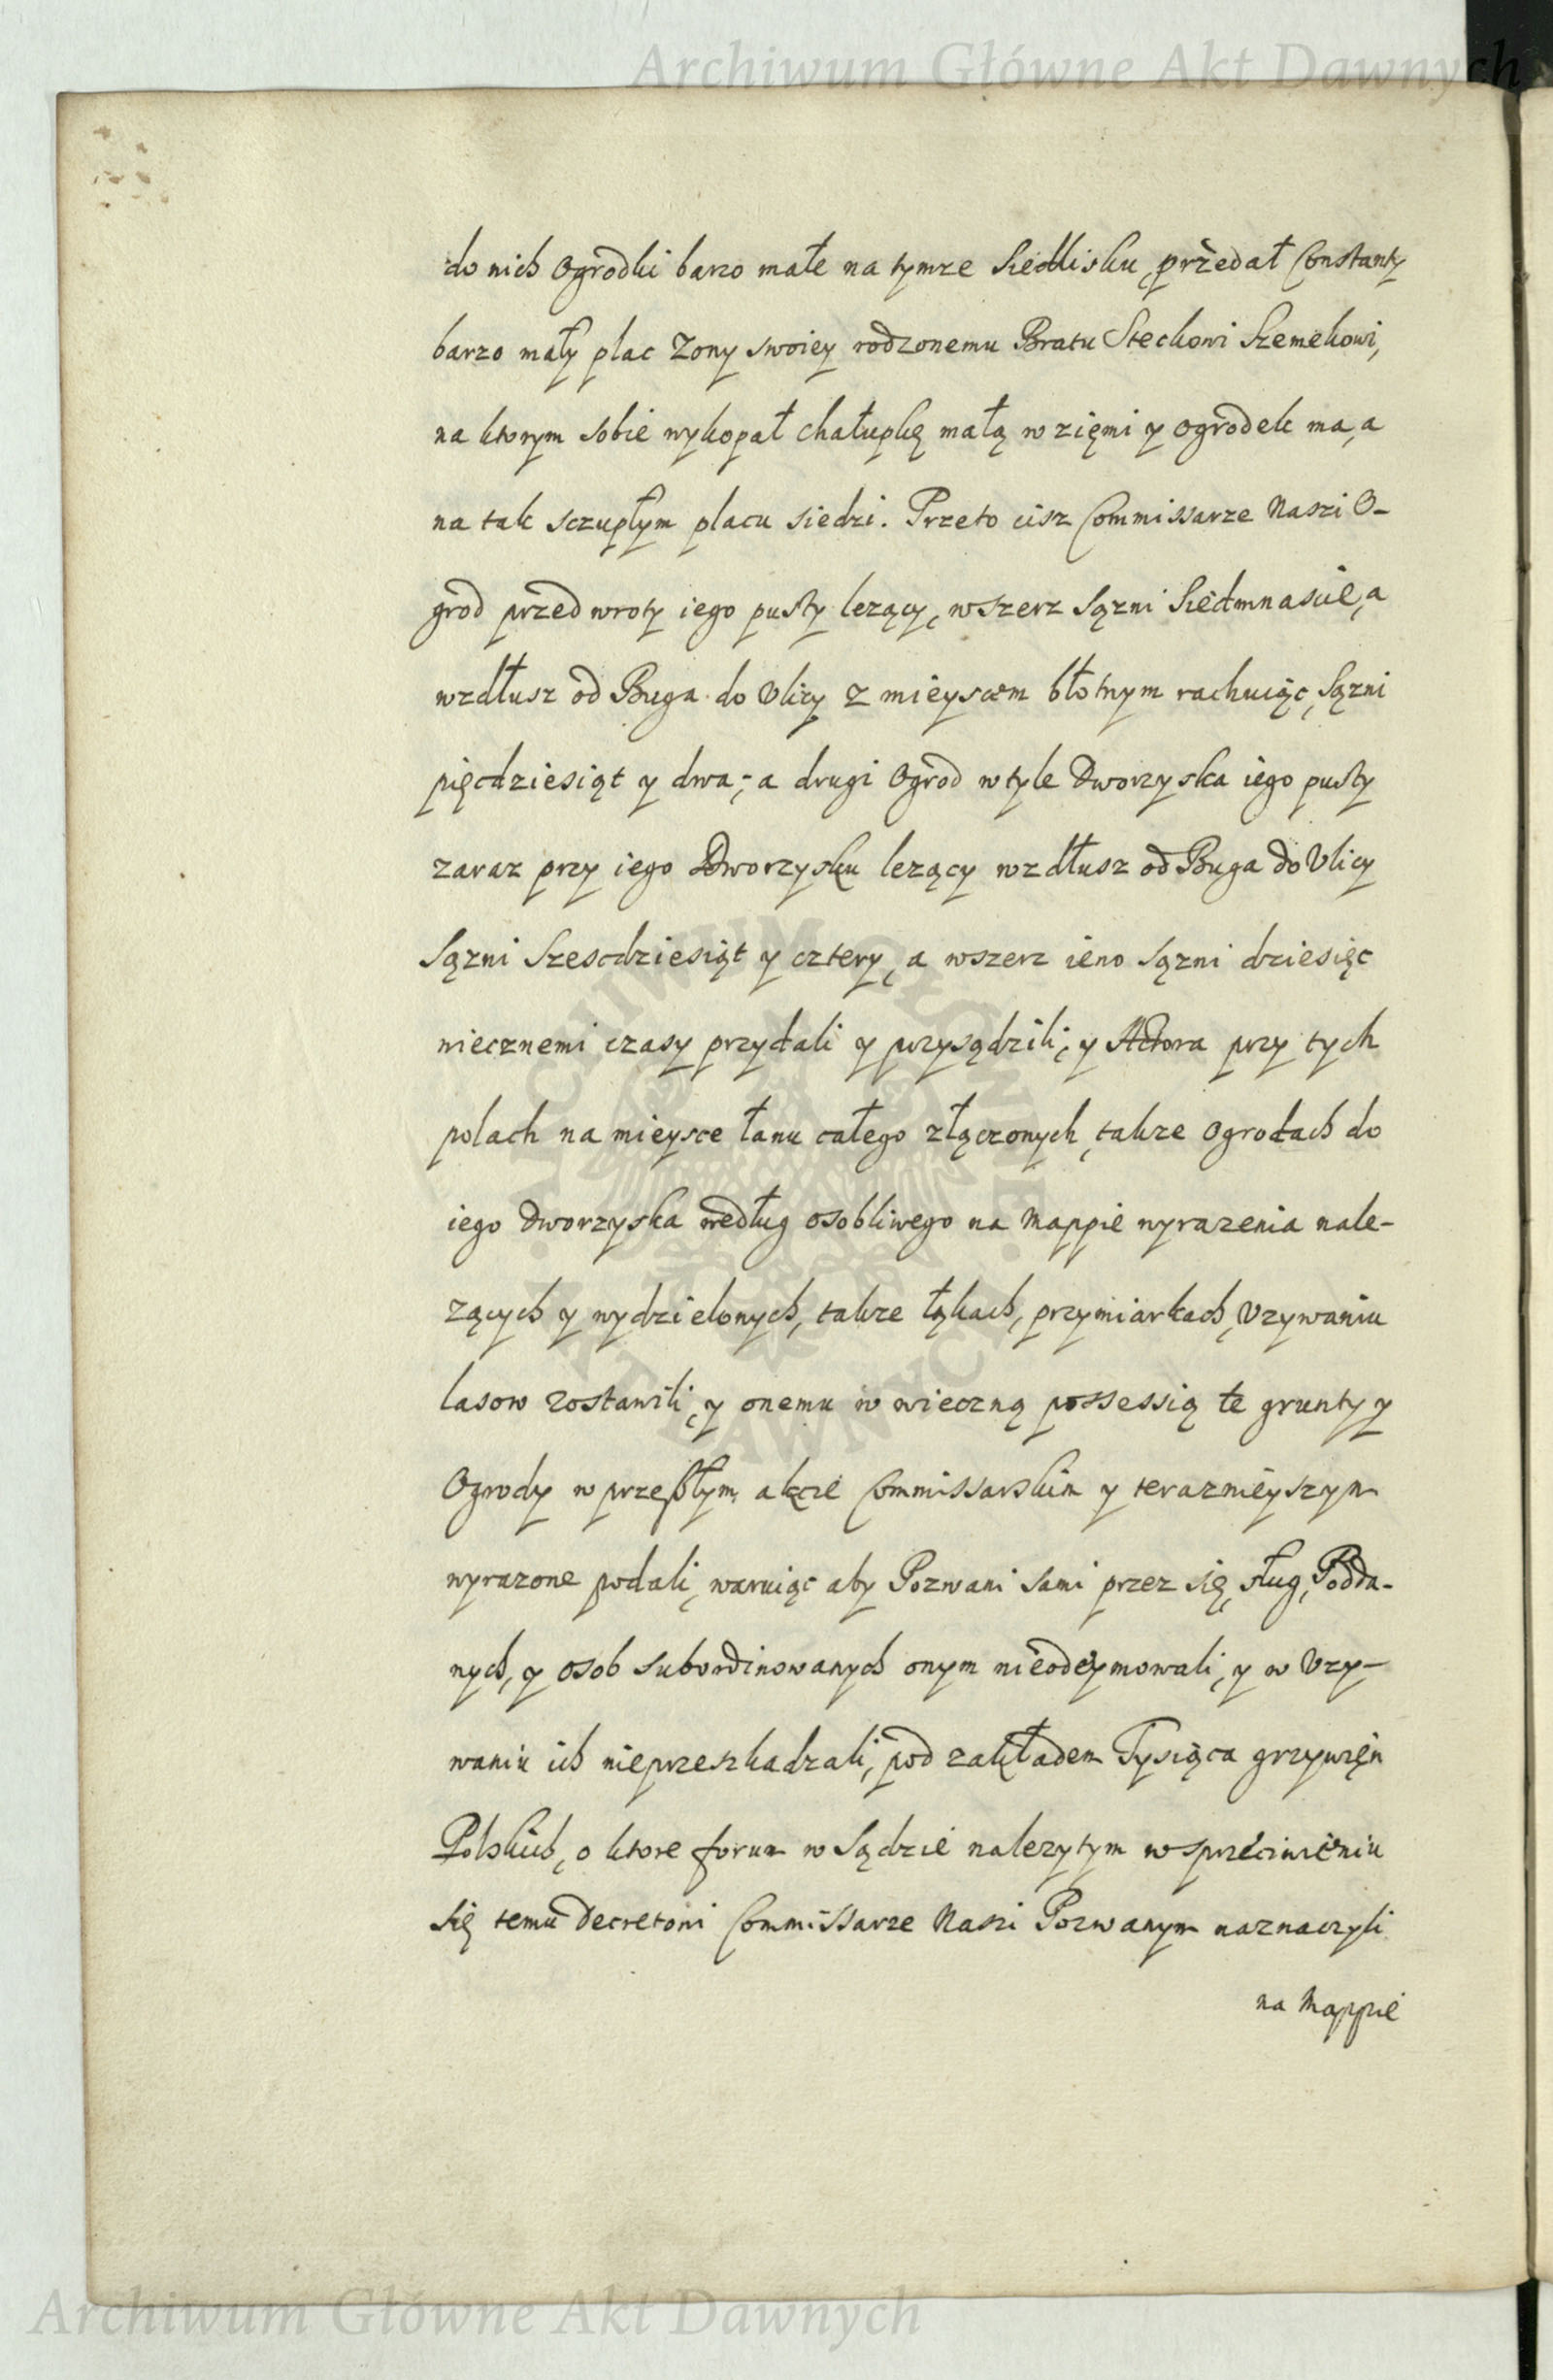 Archiwum Główne Akt Dawnych
do nich Ogrodki barzo małe na tymze Siedlisku, przedał Constanty
barzo mały plac Zony swoiey rodzonemu Bratu Steckowi Szemekowi,
na ktorym sobie wykopał chałupkę małą w zięmi y ogrodek ma, a
na tak sczupłym placu siedzi. Przeto cisz Commissarze Naszi O-
grod przed wroty iego pusty lezący, wszerz Sązni Siedmnascie, a
wzdłusz od Buga do Vlicy z mieyscem błotnym rachuiąc, Sązni
pięcdziesiąt y dwa; a drugi Ogrod w tyle Dworzyska iego pusty
zaraz przy iego Dworzysku lezący wzdłusz od Buga do Vlicy
Sązni Szescdziesiąt y cztery, a wszerz ieno Sązni dziesięc
wiecznemi czasy przydali y przysądzili, y Actora przy tych
polach na mieysce łanu całego złączonych, takze Ogrodach do
iego Dworzyska według osobliwego na Mappie wyrazenia nale-
zących y wydzielonych, takze łąkach, przymiarkach, Vzywaniu
lasow zostawili, y onemu w wieczną possessią te grunty y
Ogrody w przeszłym akcie Commissarskim y terazmieyszym
wyrazone podali, waruiąc aby Pozwani sami przez się, sług, Podda-
nych, y osob subordinowanych onym nieodeymowali, y w Vzy-
waniu ich nieprzeszkadzali, pod zakładem Tysiąca grzywięn
Polskich, o ktore forum w Sądzie nalezytym w sprzeciwieniu
się temu Decretowi Commissarze Naszi Pozwanym naznaczyli
na Mappie
ARCHIWUM GŁÓWNE AKT DAWNYCH
Archiwum Główne Akt Dawnych